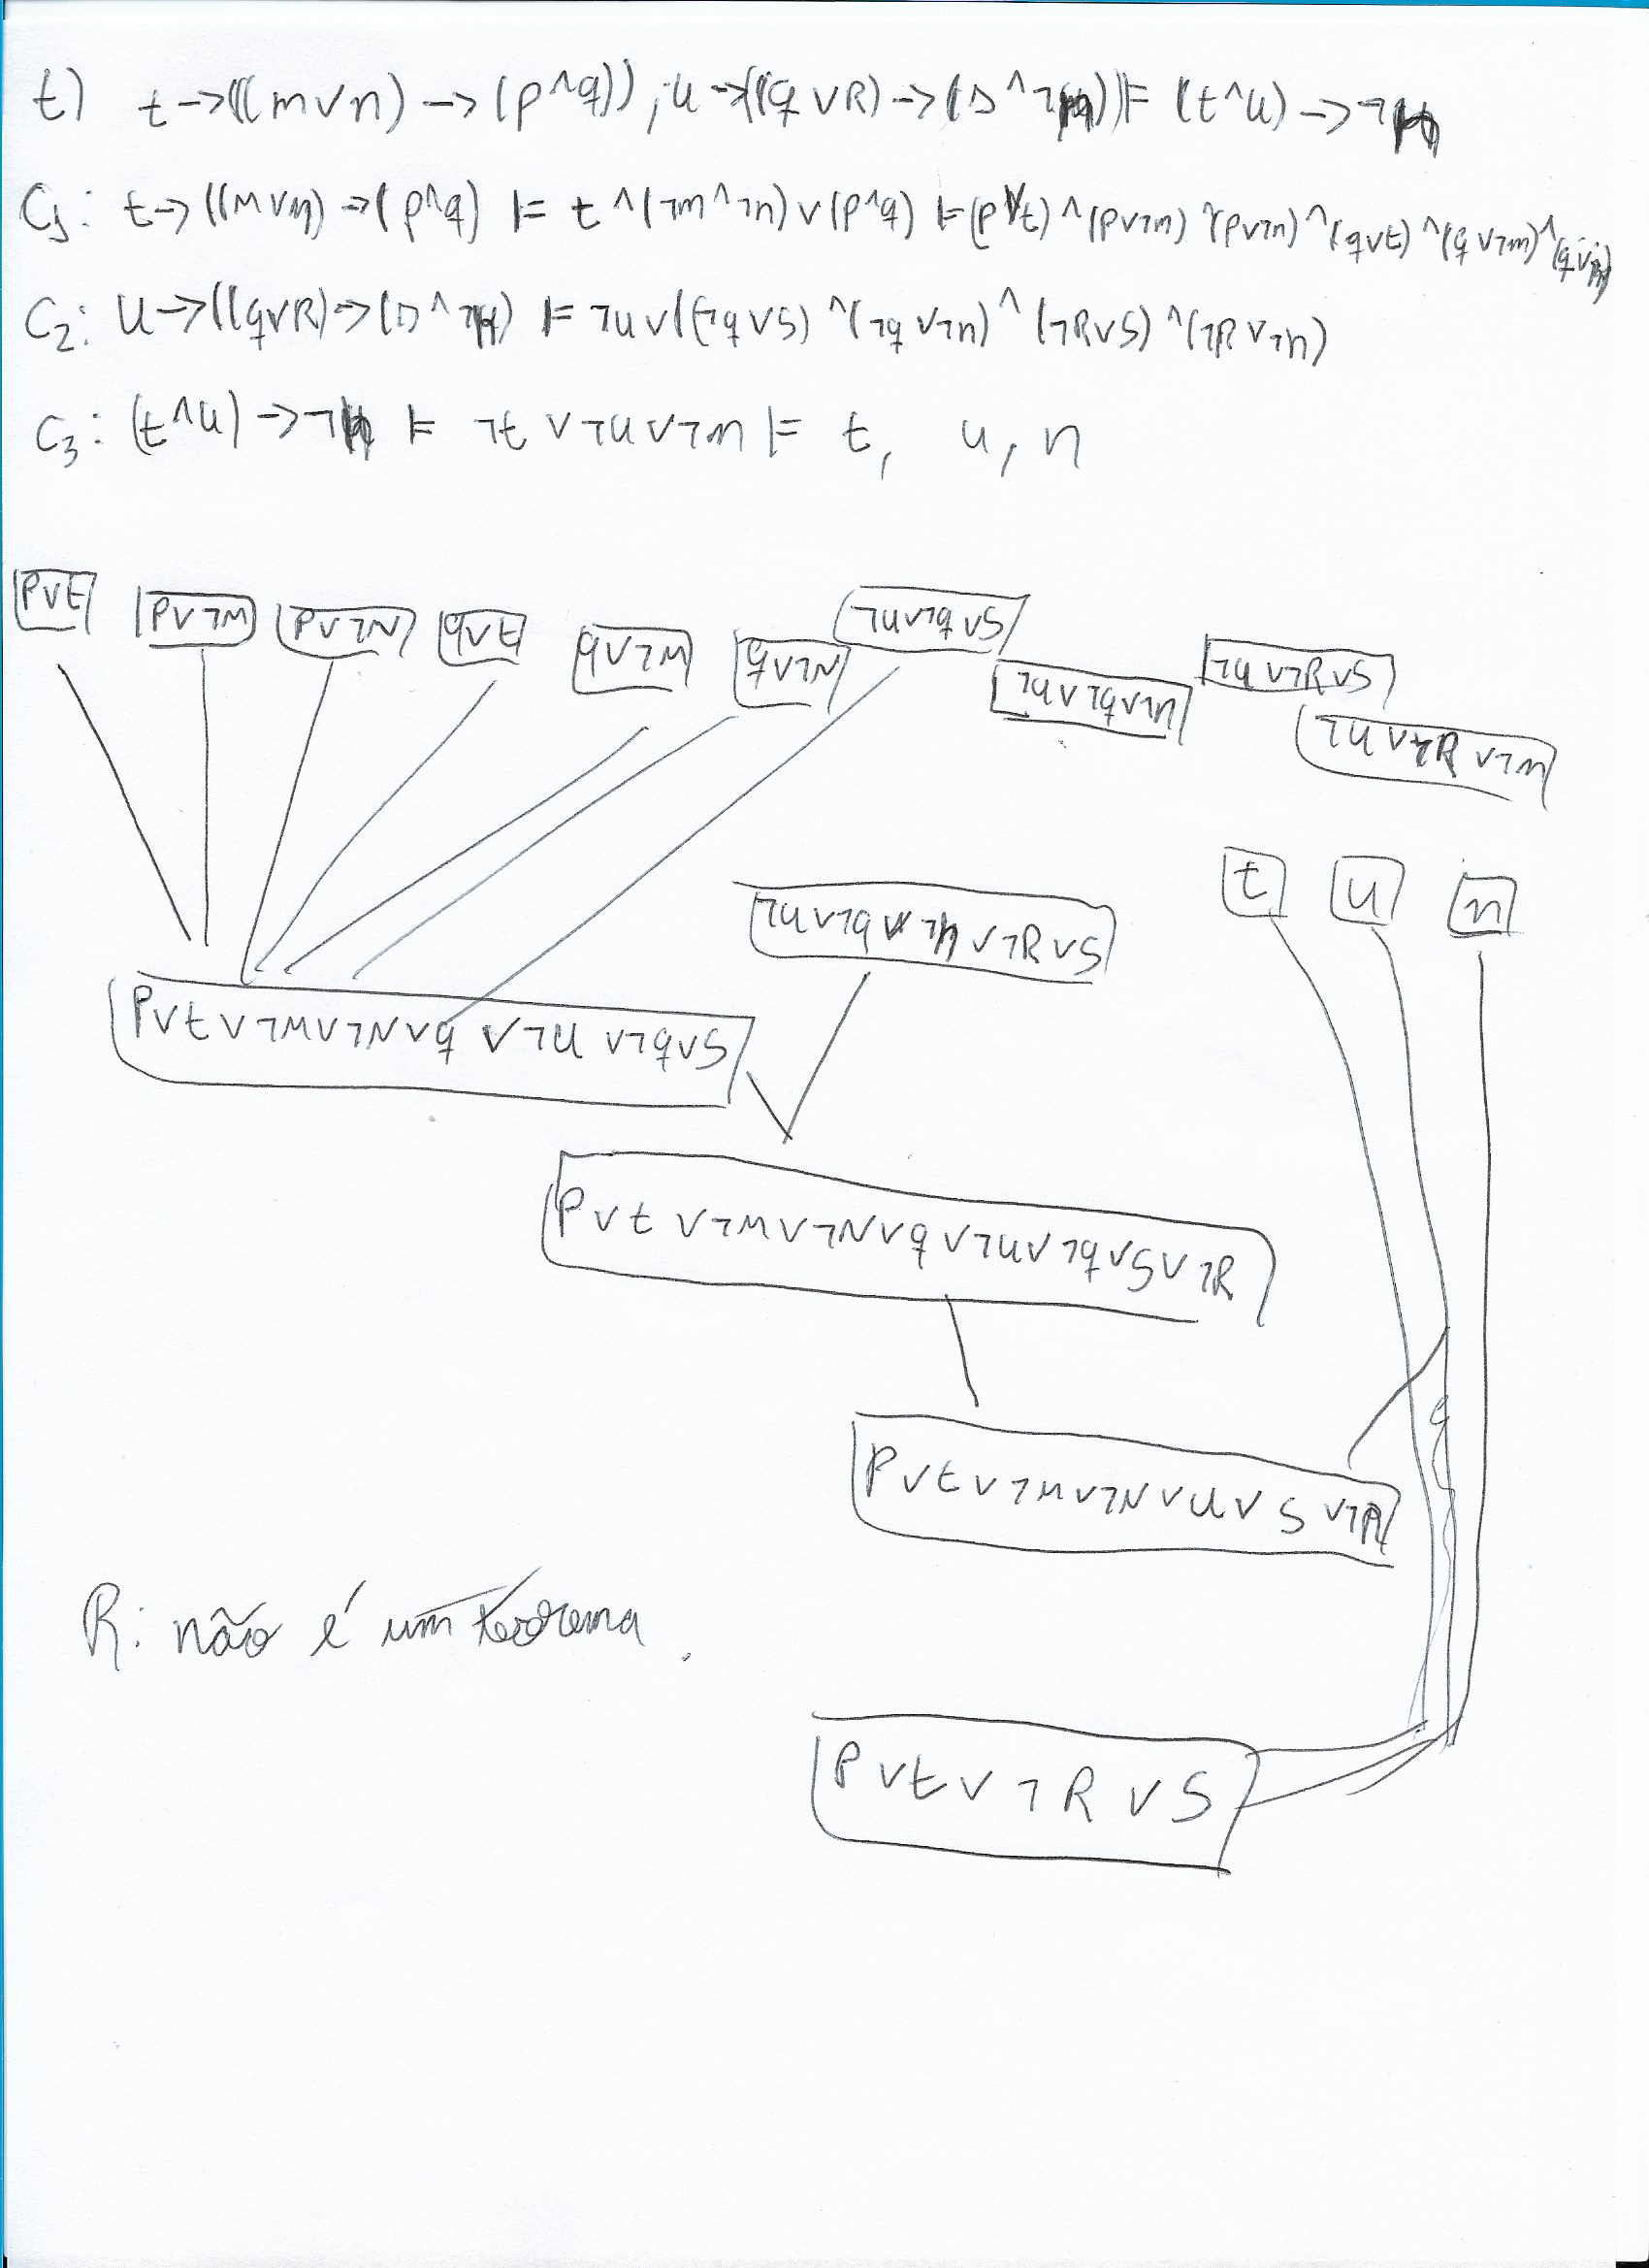 t) t→(((m∨n)→(p^q)), u→((q∨R)→(s^¬n))⊨ (t^u)→¬n
C1: t→((m∨n)→(p^q) ⊨ t^(¬m^¬n)∨(p^q) ⊨(p∨t)^(p∨¬m)^(p∨¬n)^(q∨t)^(q∨¬m)^(q∨n)
C2: u→((q∨R)→(s^¬n) ⊨ ¬u∨((¬q∨S)^(¬q∨¬n)^(¬R∨S)^(¬R∨¬n)
C3: (t^u)→¬n ⊨ ¬t∨¬u∨¬n ⊨ t, u, n
p∨t p∨¬M p∨¬N q∨t q∨¬M q∨¬N ¬u∨¬q∨S
¬u∨¬q∨¬n ¬u∨¬R∨S ¬u∨¬R∨¬n
t u n
¬u∨¬q∨¬n∨¬R∨S
p∨t∨¬M∨¬N∨q∨¬u∨¬q∨S
p∨t∨¬M∨¬N∨q∨¬u∨¬q∨S∨¬R
p∨t∨¬M∨¬N∨u∨S∨¬R
R: não é um teorema.
p∨t∨¬R∨S